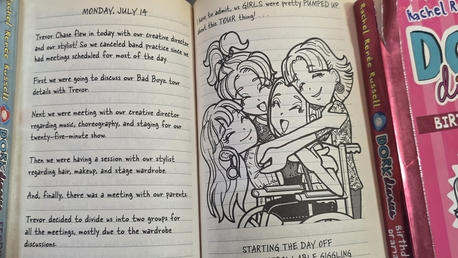 MONDAY, JULY 14
Trevor Chase flew in today with our creative director
and our stylist! So we canceled band practice since we
had meetings scheduled for most of the day.
First we were going to discuss our Bad Boyz tour
details with Trevor.
Next we were meeting with our creative director
regarding music, choreography, and staging for our
twenty-five-minute show.
Then we were having a session with our stylist
regarding hair, makeup, and stage wardrobe.
And, finally, there was a meeting with our parents.
Trevor decided to divide us into two groups for
all the meetings, mostly due to the wardrobe
discussions.
have to admit, us GIRLS were pretty PUMPED UP
about this TOUR thing! . . .
STARTING THE DAY OFF
GIGGLING
Rachel Renée Russell
DORK diaries
Birthday
Rachel R
DO
di
BIR
Renée Russell